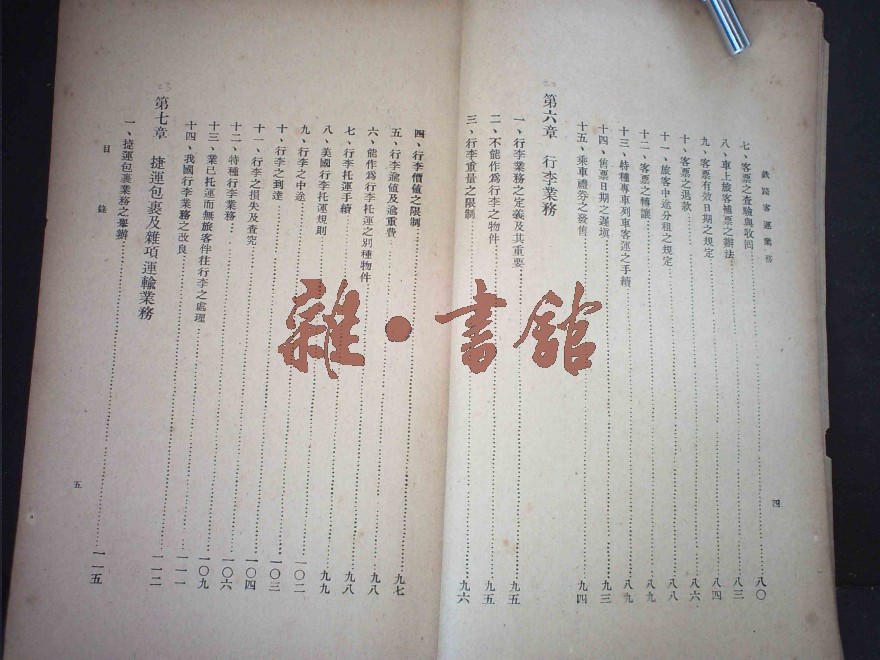 鉄路客運業務
四
七、客票之查驗與收回……八〇
八、車上旅客補票之辦法……八三
九、客票有效日期之規定……八四
十、客票之退款……八六
十一、旅客中途分租之規定……八八
十二、客票之轉讓……八九
十三、特種專車列車客運之手續……八九
十四、售票日期之遲填……九三
十五、乘車禮券之發售……九四
第六章 行李業務
一、行李業務之定義及其重要……九五
二、不能作爲行李之物件……九五
三、行李重量之限制……九六
四、行李價值之限制……九七
五、行李逾值及逾重費……九八
六、能作爲行李托運之別種物件……九八
七、行李托運手續……九九
八、美國行李托運規則……一〇二
九、行李之中途……一〇三
十、行李之到達……一〇四
十一、行李之損失及査究……一〇六
十二、特種行李業務……一〇九
十三、業已托運而無旅客伴往行李之處理……一一一
十四、我國行李業務之改良……一一二
第七章 捷運包裹及雜項運輸業務
一、捷運包裹業務之舉辦……一一五
目 錄
五
雜·書館